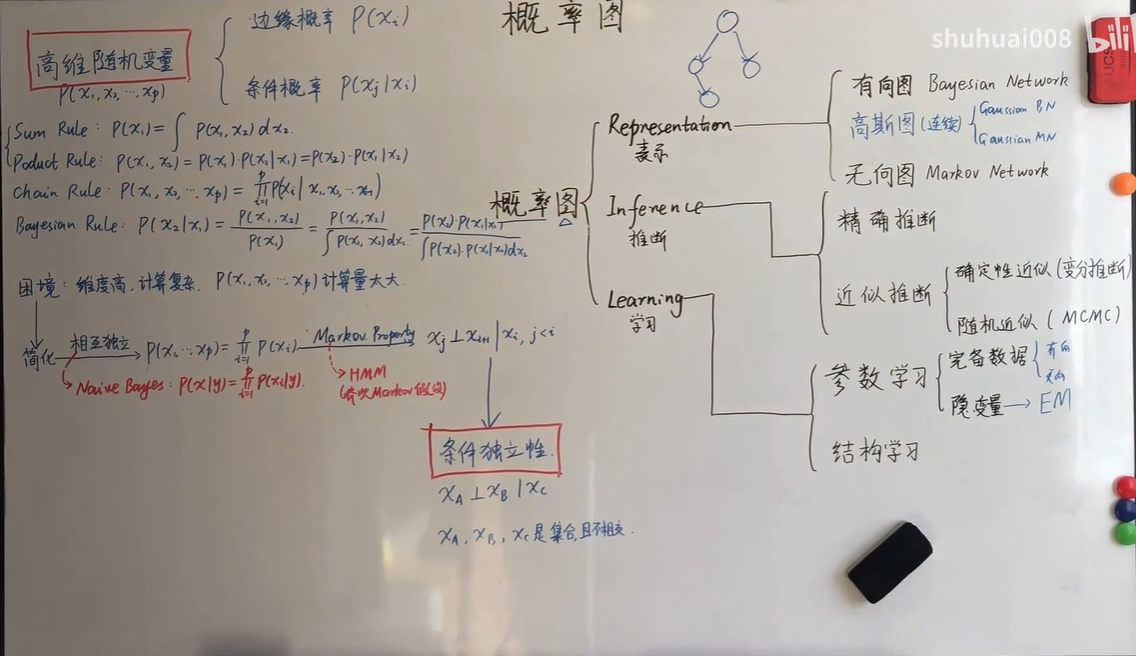 概率图
shuhuai008
bili
高维随机变量
P(x₁, x₂, ⋯, xₚ)
边缘概率 P(xᵢ)
条件概率 P(xⱼ|xᵢ)
Sum Rule: P(x₁) = ∫ P(x₁, x₂) dx₂.
Poduct Rule: P(x₁, x₂) = P(x₁)·P(x₂|x₁) = P(x₂)·P(x₁|x₂)
Chain Rule: P(x₁, x₂, ⋯, xₚ) = ∏ᵢ₌₁ᵖ P(xᵢ | x₁, x₂, ⋯, xᵢ₋₁)
Bayesian Rule: P(x₂|x₁) = P(x₁, x₂) / P(x₁) = P(x₁, x₂) / ∫ P(x₁, x₂) dx₂ = P(x₂)·P(x₁|x₂) / ∫ P(x₂)·P(x₁|x₂) dx₂
困境: 维度高, 计算复杂, P(x₁, x₂, ⋯, xₚ) 计算量太大.
简化 相互独立 P(x₁, ⋯, xₚ) = ∏ᵢ₌₁ᵖ P(xᵢ) Markov Property xⱼ ⊥ xᵢ₊₁ | xᵢ, j < i
Naive Bayes: P(x|y) = ∏ᵢ₌₁ᵖ P(xᵢ|y).
HMM
(齐次Markov假设)
条件独立性.
x_A ⊥ x_B | x_C
x_A, x_B, x_C 是集合, 且不相交.
概率图
Representation
表示
有向图 Bayesian Network
高斯图 (连续)
Gaussian BN
Gaussian MN
无向图 Markov Network
Inference
推断
精确推断
近似推断
确定性近似 (变分推断)
随机近似 (MCMC)
Learning
学习
参数学习
完备数据
有向
无向
隐变量 → EM
结构学习